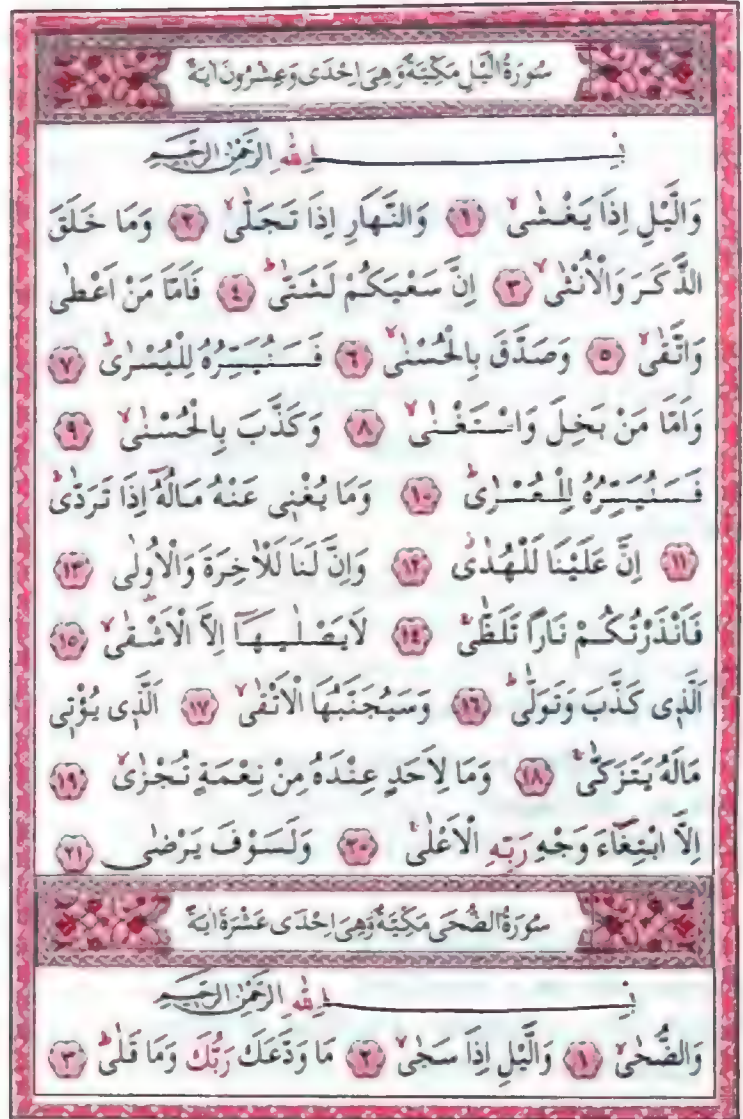 سُورَةُ الَّيْلِ مَكِّيَّةٌ وَهِىَ اِحْدٰى وَعِشْرُونَ اٰيَةً
بِسْمِ اللّٰهِ الرَّحْمٰنِ الرَّحِيمِ
وَالَّيْلِ اِذَا يَغْشٰىۙ ﴿١﴾ وَالنَّهَارِ اِذَا تَجَلّٰىۙ ﴿٢﴾ وَمَا خَلَقَ
الذَّكَرَ وَالْاُنْثٰىۙ ﴿٣﴾ اِنَّ سَعْيَكُمْ لَشَتّٰىۜ ﴿٤﴾ فَاَمَّا مَنْ اَعْطٰى
وَاتَّقٰىۙ ﴿٥﴾ وَصَدَّقَ بِالْحُسْنٰىۙ ﴿٦﴾ فَسَنُيَسِّرُهُ لِلْيُسْرٰىۜ ﴿٧﴾
وَاَمَّا مَنْ بَخِلَ وَاسْتَغْنٰىۙ ﴿٨﴾ وَكَذَّبَ بِالْحُسْنٰىۙ ﴿٩﴾
فَسَنُيَسِّرُهُ لِلْعُسْرٰىۜ ﴿١٠﴾ وَمَا يُغْنٖى عَنْهُ مَالُهُٓ اِذَا تَرَدّٰىۜ
﴿١١﴾ اِنَّ عَلَيْنَا لَلْهُدٰىۘ ﴿١٢﴾ وَاِنَّ لَنَا لَلْاٰخِرَةَ وَالْاُو۫لٰى ﴿١٣﴾
فَاَنْذَرْتُكُمْ نَارًا تَلَظّٰىۚ ﴿١٤﴾ لَا يَصْلٰيهَٓا اِلَّا الْاَشْقٰىۙ ﴿١٥﴾
اَلَّذٖى كَذَّبَ وَتَوَلّٰىۜ ﴿١٦﴾ وَسَيُجَنَّبُهَا الْاَتْقٰىۙ ﴿١٧﴾ اَلَّذٖى يُؤْتٖى
مَالَهُ يَتَزَكّٰىۚ ﴿١٨﴾ وَمَا لِاَحَدٍ عِنْدَهُ مِنْ نِعْمَةٍ تُجْزٰىۙ ﴿١٩﴾
اِلَّا ابْتِغَٓاءَ وَجْهِ رَبِّهِ الْاَعْلٰىۚ ﴿٢٠﴾ وَلَسَوْفَ يَرْضٰى ﴿٢١﴾
سُورَةُ الضُّحٰى مَكِّيَّةٌ وَهِىَ اِحْدٰى عَشْرَةَ اٰيَةً
بِسْمِ اللّٰهِ الرَّحْمٰنِ الرَّحِيمِ
وَالضُّحٰىۙ ﴿١﴾ وَالَّيْلِ اِذَا سَجٰىۙ ﴿٢﴾ مَا وَدَّعَكَ رَبُّكَ وَمَا قَلٰىۜ ﴿٣﴾